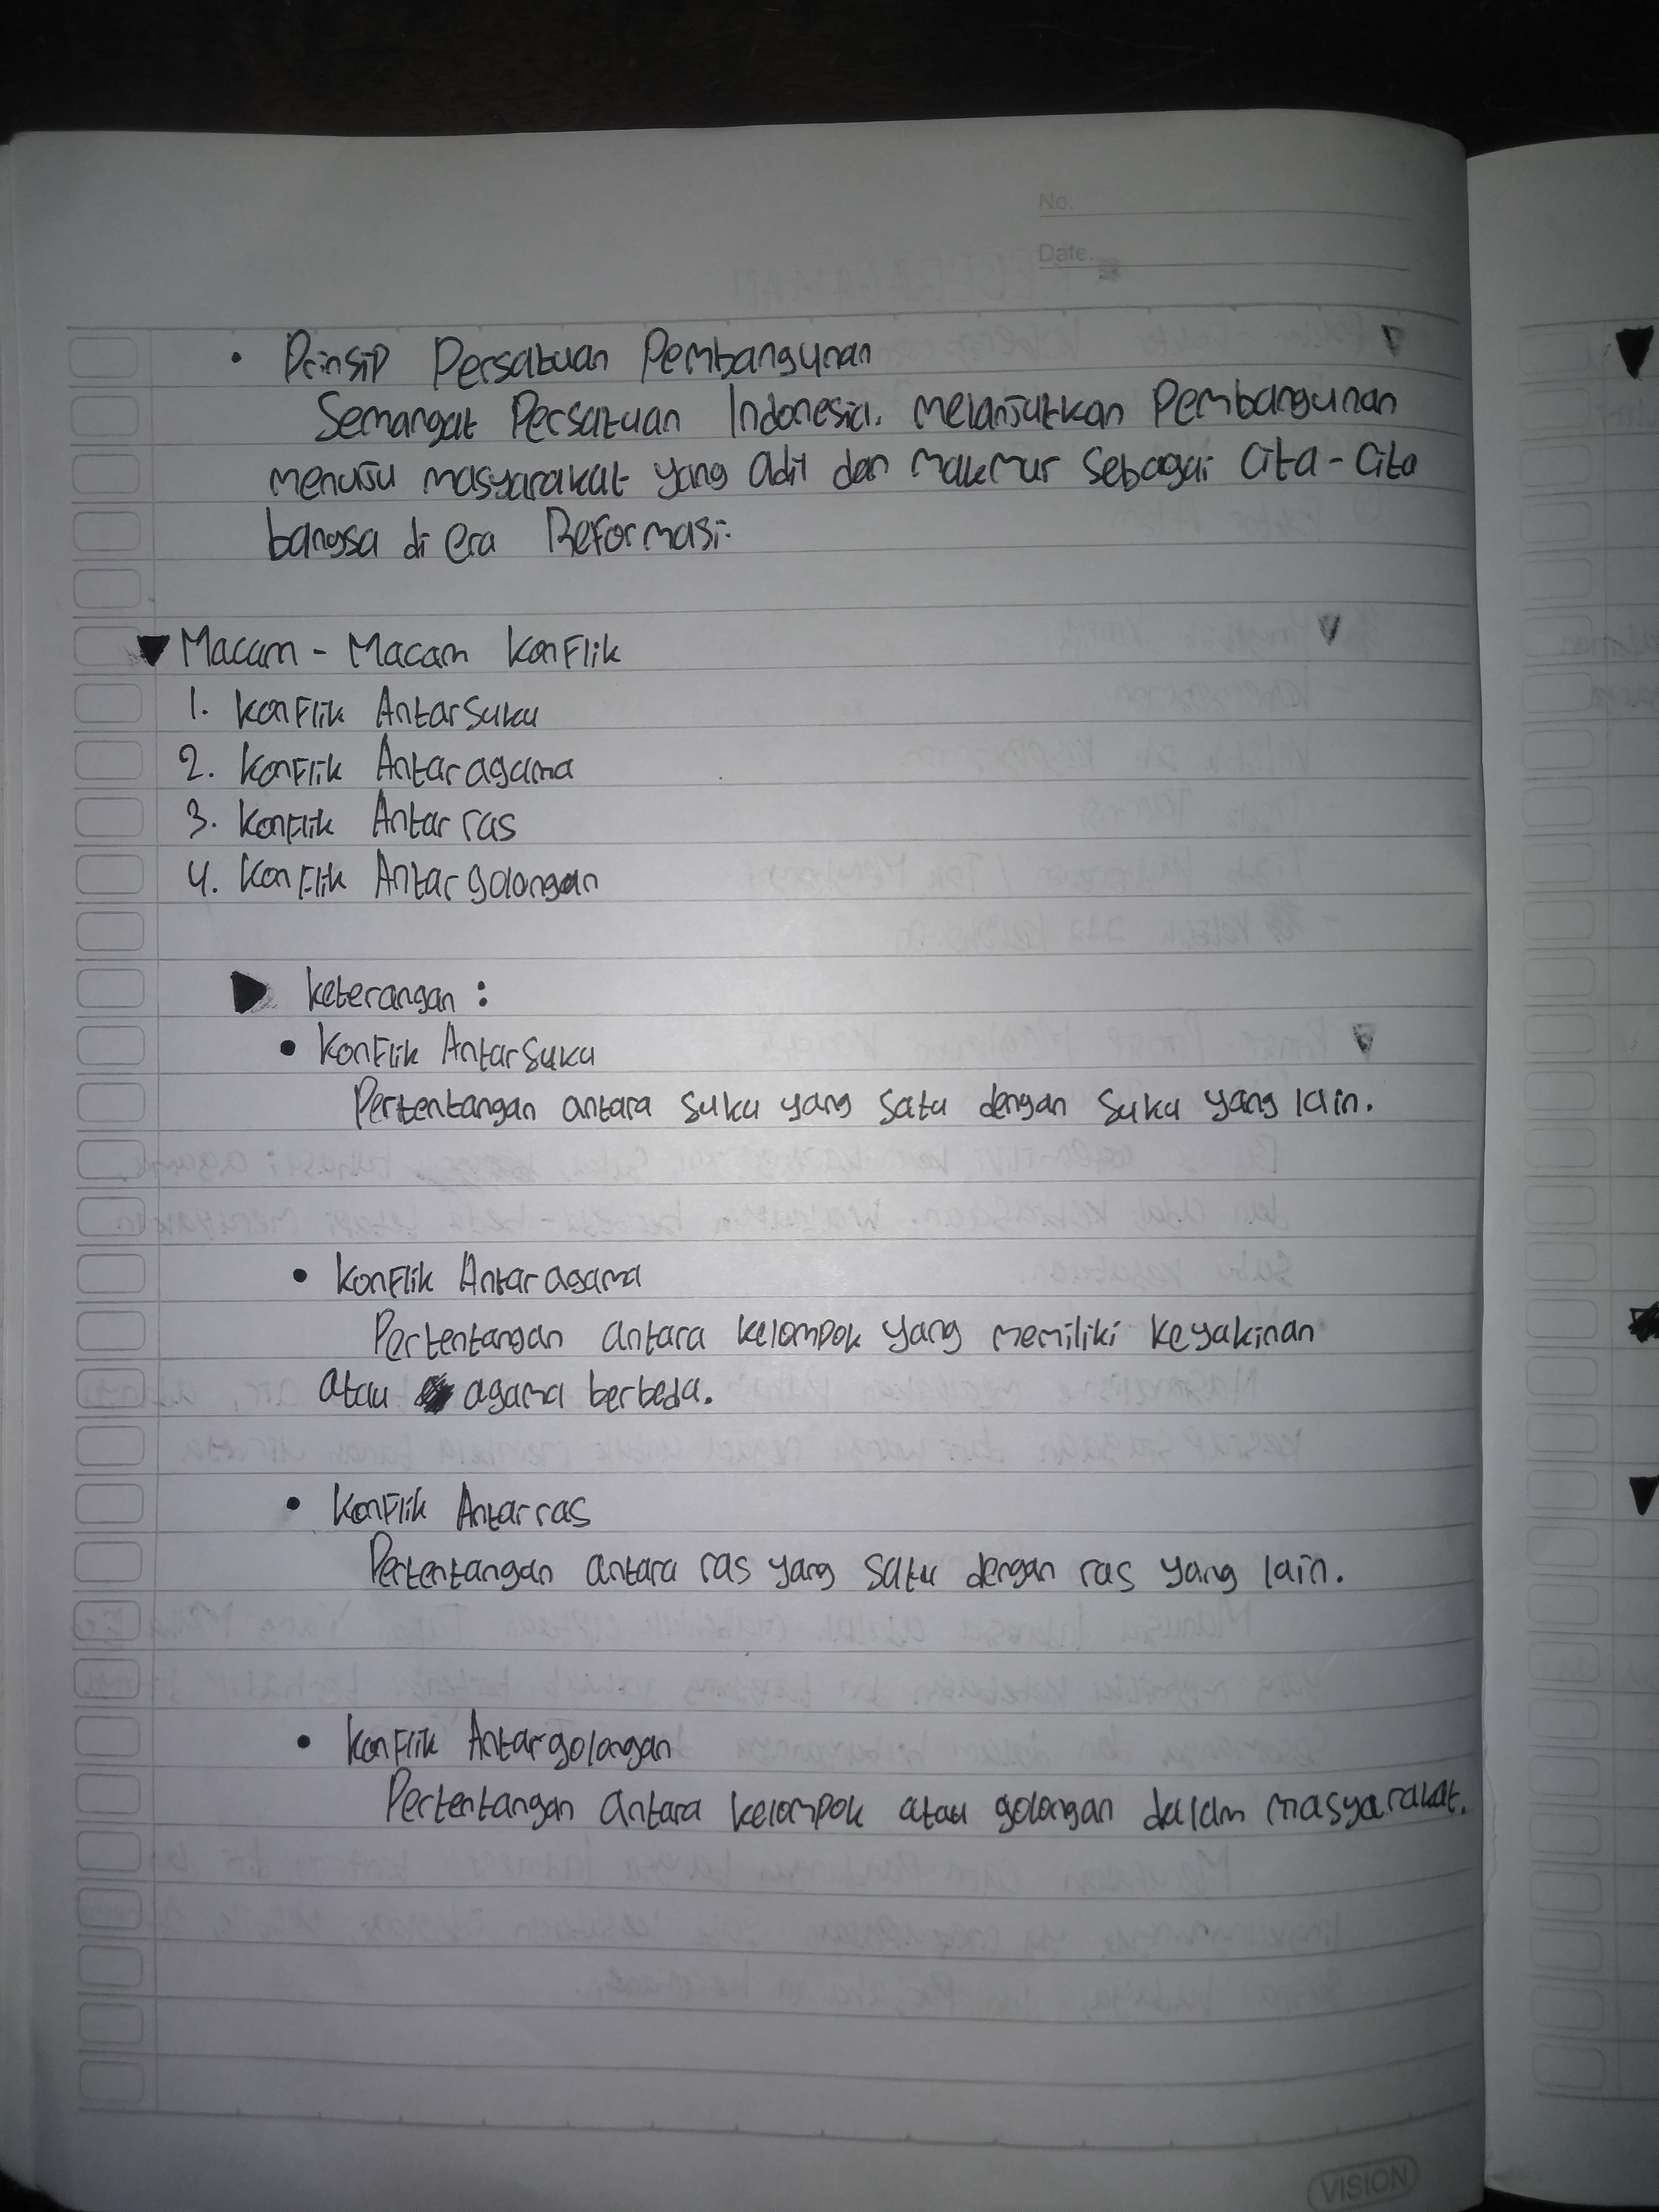 No.
Date.
• Prinsip Persatuan Pembangunan
Semangat Persatuan Indonesia. melanjutkan Pembangunan
menuju masyarakat yang adil dan makmur sebagai Cita-Cita
bangsa di era Reformasi.
▼ Macam - Macam Konflik
1. Konflik Antarsuku
2. Konflik Antaragama
3. Konflik Antarras
4. Konflik Antargolongan
▶ keterangan :
• Konflik Antarsuku
Pertentangan antara suku yang satu dengan suku yang lain.
• Konflik Antaragama
Pertentangan antara kelompok yang memiliki keyakinan
atau agama berbeda.
• Konflik Antarras
Pertentangan antara ras yang satu dengan ras yang lain.
• Konflik Antargolongan
Pertentangan antara kelompok atau golongan dalam masyarakat.
VISION